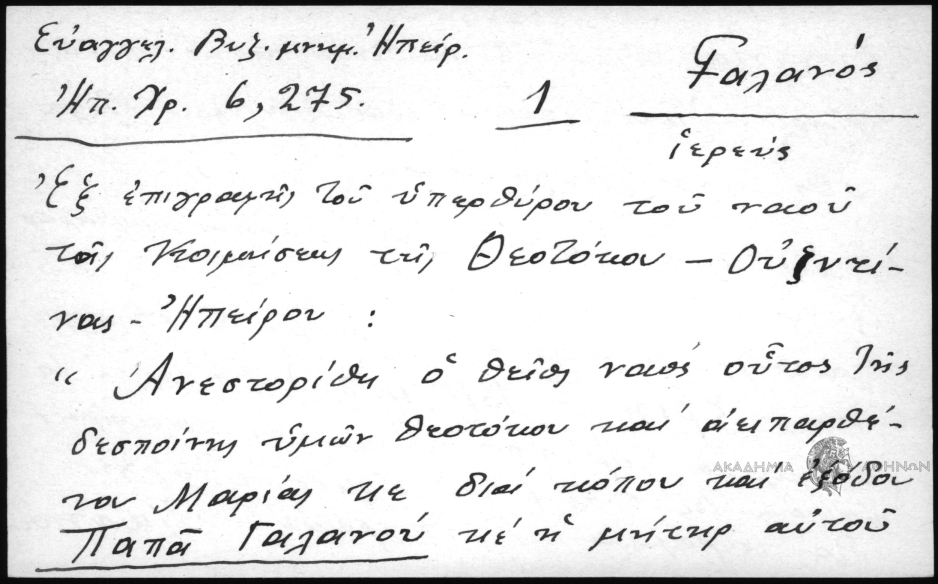 Εὐαγγελ. Βυζ. μνημ. Ἠπείρ.
Ἠπ. Χρ. 6, 275.
1
Γαλανός
ἱερεύς
Ἐξ ἐπιγραφῆς τοῦ ὑπερθύρου τοῦ ναοῦ
τῆς Κοιμήσεως τῆς Θεοτόκου – Οὐζντί-
νας - Ἠπείρου :
“ Ἀνεστορίθη ὁ θεῖος ναός οὗτος τῆς
δεσποίνης ὑμῶν θεοτόκου καί ἀειπαρθέ-
νου Μαρίας κε διά κόπου και ἐξόδου
Παπᾶ Γαλανού κέ ἡ μήτηρ αὐτοῦ
ΑΚΑΔΗΜΙΑ ΑΘΗΝΩΝ